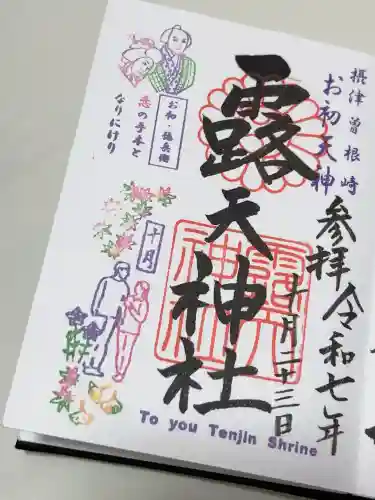 摂津曽根崎
お初天神
参拝令和七年
十月二十三日
露天神社
お初・徳兵衛
恋の手本と
なりにけり
十月
To you Tenjin Shrine